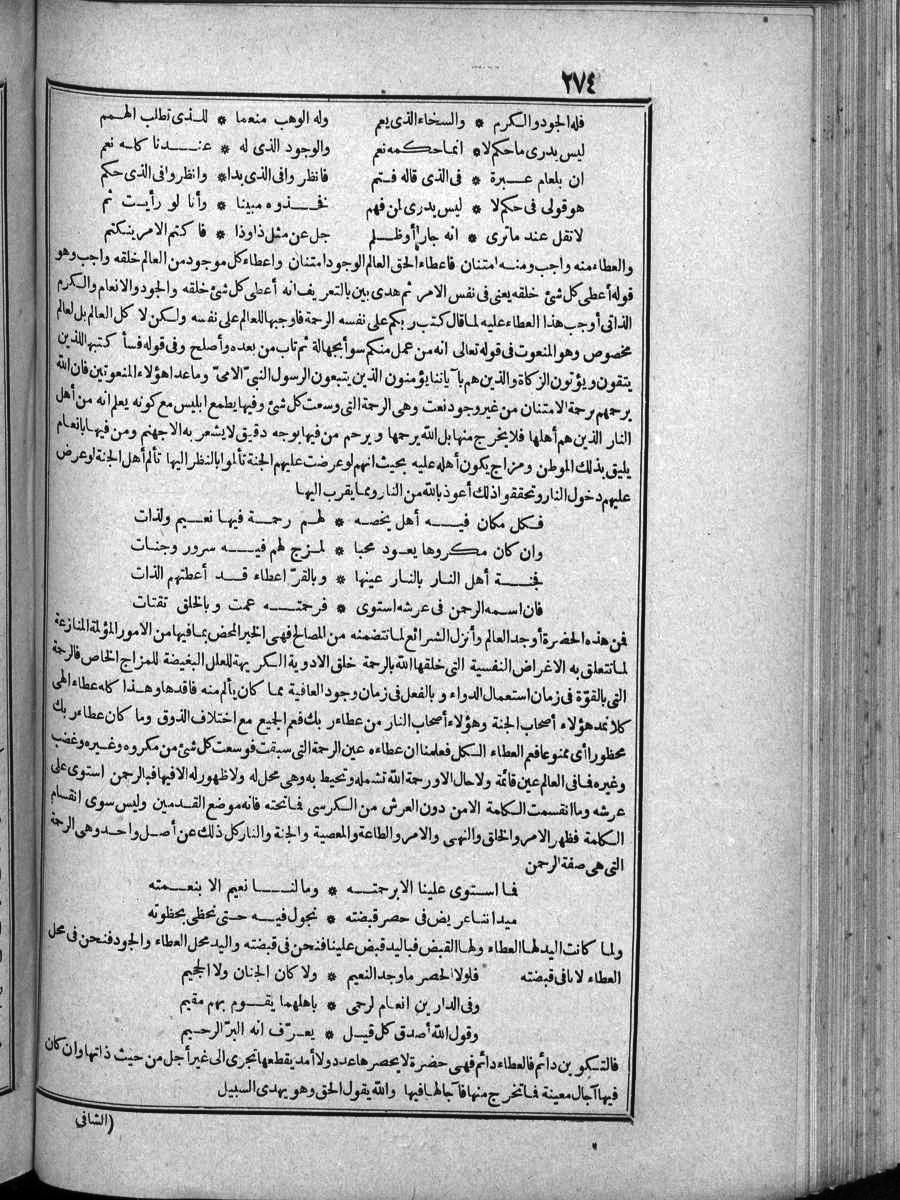 ٢٧٤
فله الجود والكرم * والسخاء الذى يعم وله الوهب منعما * للذى تطلب الهمم
ليس يدرى ما حكم لا * انما حكمه نعم والوجود الذى له * عندنا كله نعم
ان بلعام عبرة * فى الذى قاله فتم فانظروا فى الذى بدا * وانظروا فى الذى حكم
هو قولى فى حكم لا * ليس يدرى لمن فهم فخذوه مبينا * وأنا لو رأيت ثم
لا تقل عند ما ترى * انه جار أو ظلم جل عن مثل ذا وذا * فاكتم الامر ينكتم
والعطاء منه واجب ومنه امتنان فاعطاء الحق العالم الوجود امتنان واعطاء كل موجود من العالم خلقه واجب وهو
قوله أعطى كل شئ خلقه يعنى فى نفس الامر ثم هدى بين بالتعريف انه أعطى كل شئ خلقه والجود والانعام والكرم
الذاتى أوجب هذا العطاء عليه لما قال كتب ربكم على نفسه الرحمة فاوجبها للعالم على نفسه ولكن لا كل العالم بل لعالم
مخصوص وهو المنعوت فى قوله تعالى انه من عمل منكم سوأ بجهالة ثم تاب من بعده وأصلح وفى قوله فسأ كتبها للذين
يتقون ويؤتون الزكاة والذين هم بآياتنا يؤمنون الذين يتبعون الرسول النبىّ الامىّ وما عدا هؤلاء المنعوتين فان الله
يرحمهم برحمة الامتنان من غير وجود نعت وهى الرحمة التى وسعت كل شئ وفيها يطمع ابليس مع كونه يعلم انه من أهل
النار الذين هم أهلها فلا يخرج منها بل الله يرحمها ويرحم من فيها بوجه دقيق لا يشعر به الا جهنم ومن فيها بانعام
يليق بذلك الموطن ومزاج يكون أهله عليه بحيث انهم لو عرضت عليهم الجنة تألموا بالنظر اليها تألم أهل الجنة لو عرض
عليهم دخول النار وتحققوا ذلك أعوذ بالله من النار ومما يقرب اليها
فكل مكان فيه أهل يخصه * لهم رحمة فيها نعيم ولذات
وان كان مكروها يعود محبا * لمزج لهم فيه سرور وجنات
فجنة أهل النار بالنار عينها * وبالقرّ اعطاء قد أعطتهم الذات
فان اسمه الرحمن فى عرشه استوى * فرحمته عمت وبالخلق تقتات
فمن هذه الحضرة أوجد العالم وأنزل الشرائع لما تتضمنه من المصالح فهى الخير المحض بما فيها من الامور المؤلمة المنازعة
لما تتعلق به الاغراض النفسية التى خلقها الله بالرحمة خلق الادوية الكريهة للعلل البغيضة للمزاج الخاص فالرحمة
التى بالقوّة فى زمان استعمال الدواء وبالفعل فى زمان وجود العافية مما كان يألم منه فاقدها وهذا كله عطاء الهى
كلا نمد هؤلاء أصحاب الجنة وهؤلاء أصحاب النار من عطاء ربك فعم الجميع مع اختلاف الذوق وما كان عطاء ربك
محظورا أى ممنوعا فعم العطاء الكل فعلمنا ان عطاءه عين الرحمة التى سبقت فوسعت كل شئ من مكروه وغيره وغضب
وغيره فما فى العالم عين قائمة ولا حال الا ورحمة الله تشمله وتحيط به وهى محل له ولا ظهور له الا فيها فبالرحمن استوى على
عرشه وما انقسمت الكلمة الا من دون العرش من الكرسى فما تحته فانه موضع القدمين وليس سوى انقسام
الكلمة فظهر الامر والخلق والنهى والامر والطاعة والمعصية والجنة والنار كل ذلك عن أصل واحد وهى الرحمة
التى هى صفة الرحمن
فما استوى علينا الا برحمته * وما لنا نعيم الا بنعمته
ميداننا عريض فى حصر قبضته * نجول فيه حتى نحظى بحظوته
ولما كانت اليد لها العطاء ولها القبض فباليد قبض علينا فنحن فى قبضته واليد محل العطاء والجود فنحن فى محل
العطاء لانا فى قبضته فلولا الحصر ما وجد النعيم * ولا كان الجنان ولا الجحيم
وفى الدارين انعام لرحمى * باهلهما يقوم بهم مقيم
وقول الله أصدق كل قيل * يعرّف انه البرّ الرحيم
فالتكوين دائم فالعطاء دائم فهى حضرة لا يحصرها عدد ولا أمد يقطعها تجرى الى غير أجل من حيث ذاتها وان كان
فيها آجال معينة فما تخرج منها فآجالها فيها والله يقول الحق وهو يهدى السبيل
(الشافى